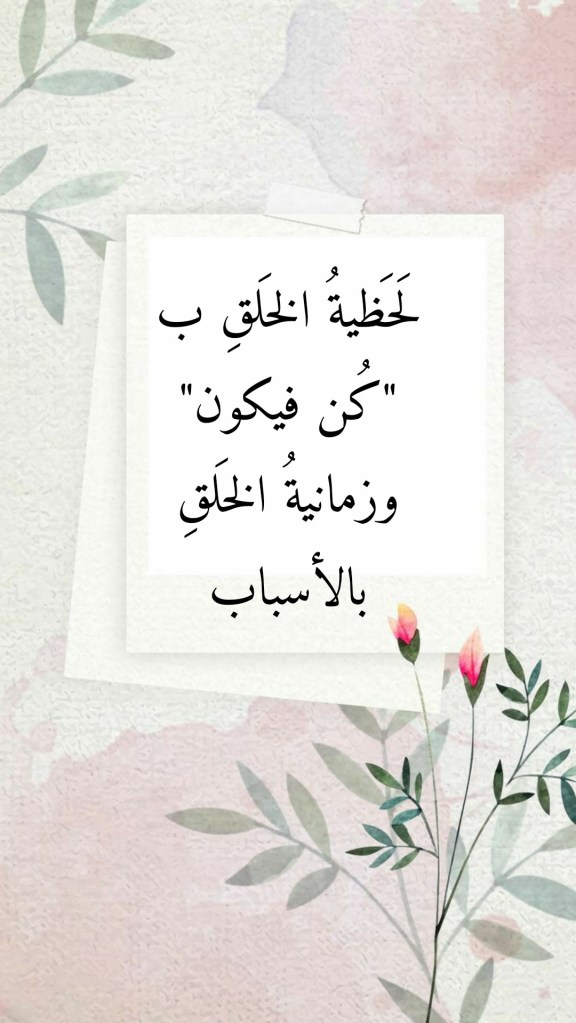 لَحَظيةُ الخَلَقِ ب
"كُن فيكون"
وزمانيةُ الخَلَقِ
بالأسباب